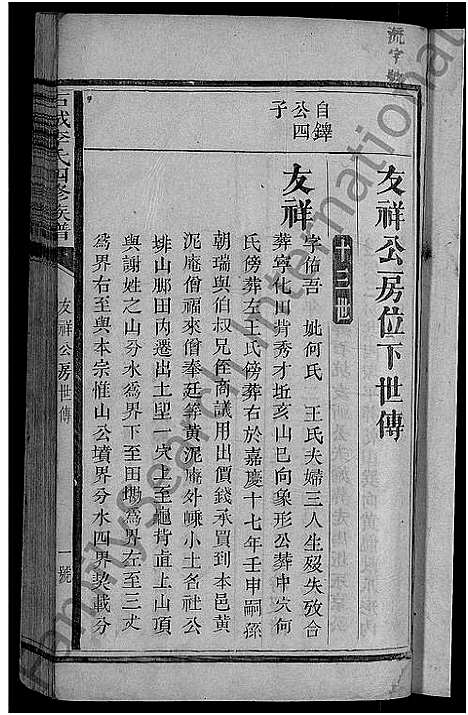 友祥公房位下世傳
十三世
自鐸
公四
子
友祥
字佑吾 妣何氏 王氏夫婦三人生歿失攷合
葬寧化田背秀才坵亥山巳向象形公葬中穴何
氏傍葬左王氏傍葬右於嘉慶十七年壬申嗣孫
朝瑞與伯叔兄侄商議用出價錢承買到本邑黃
泥庵僧福來僧奉廷等黃泥庵外嵊小土名社公
排山腳田內遷出土堲一穴上至龜背直上山頂
與謝姓之山分水為界下至田塅為界左至三丈
為界右至與本宗惟山公墳界分水四界契載分
石城李氏四修族譜
友祥公房世傳
一號
FamilySearch International